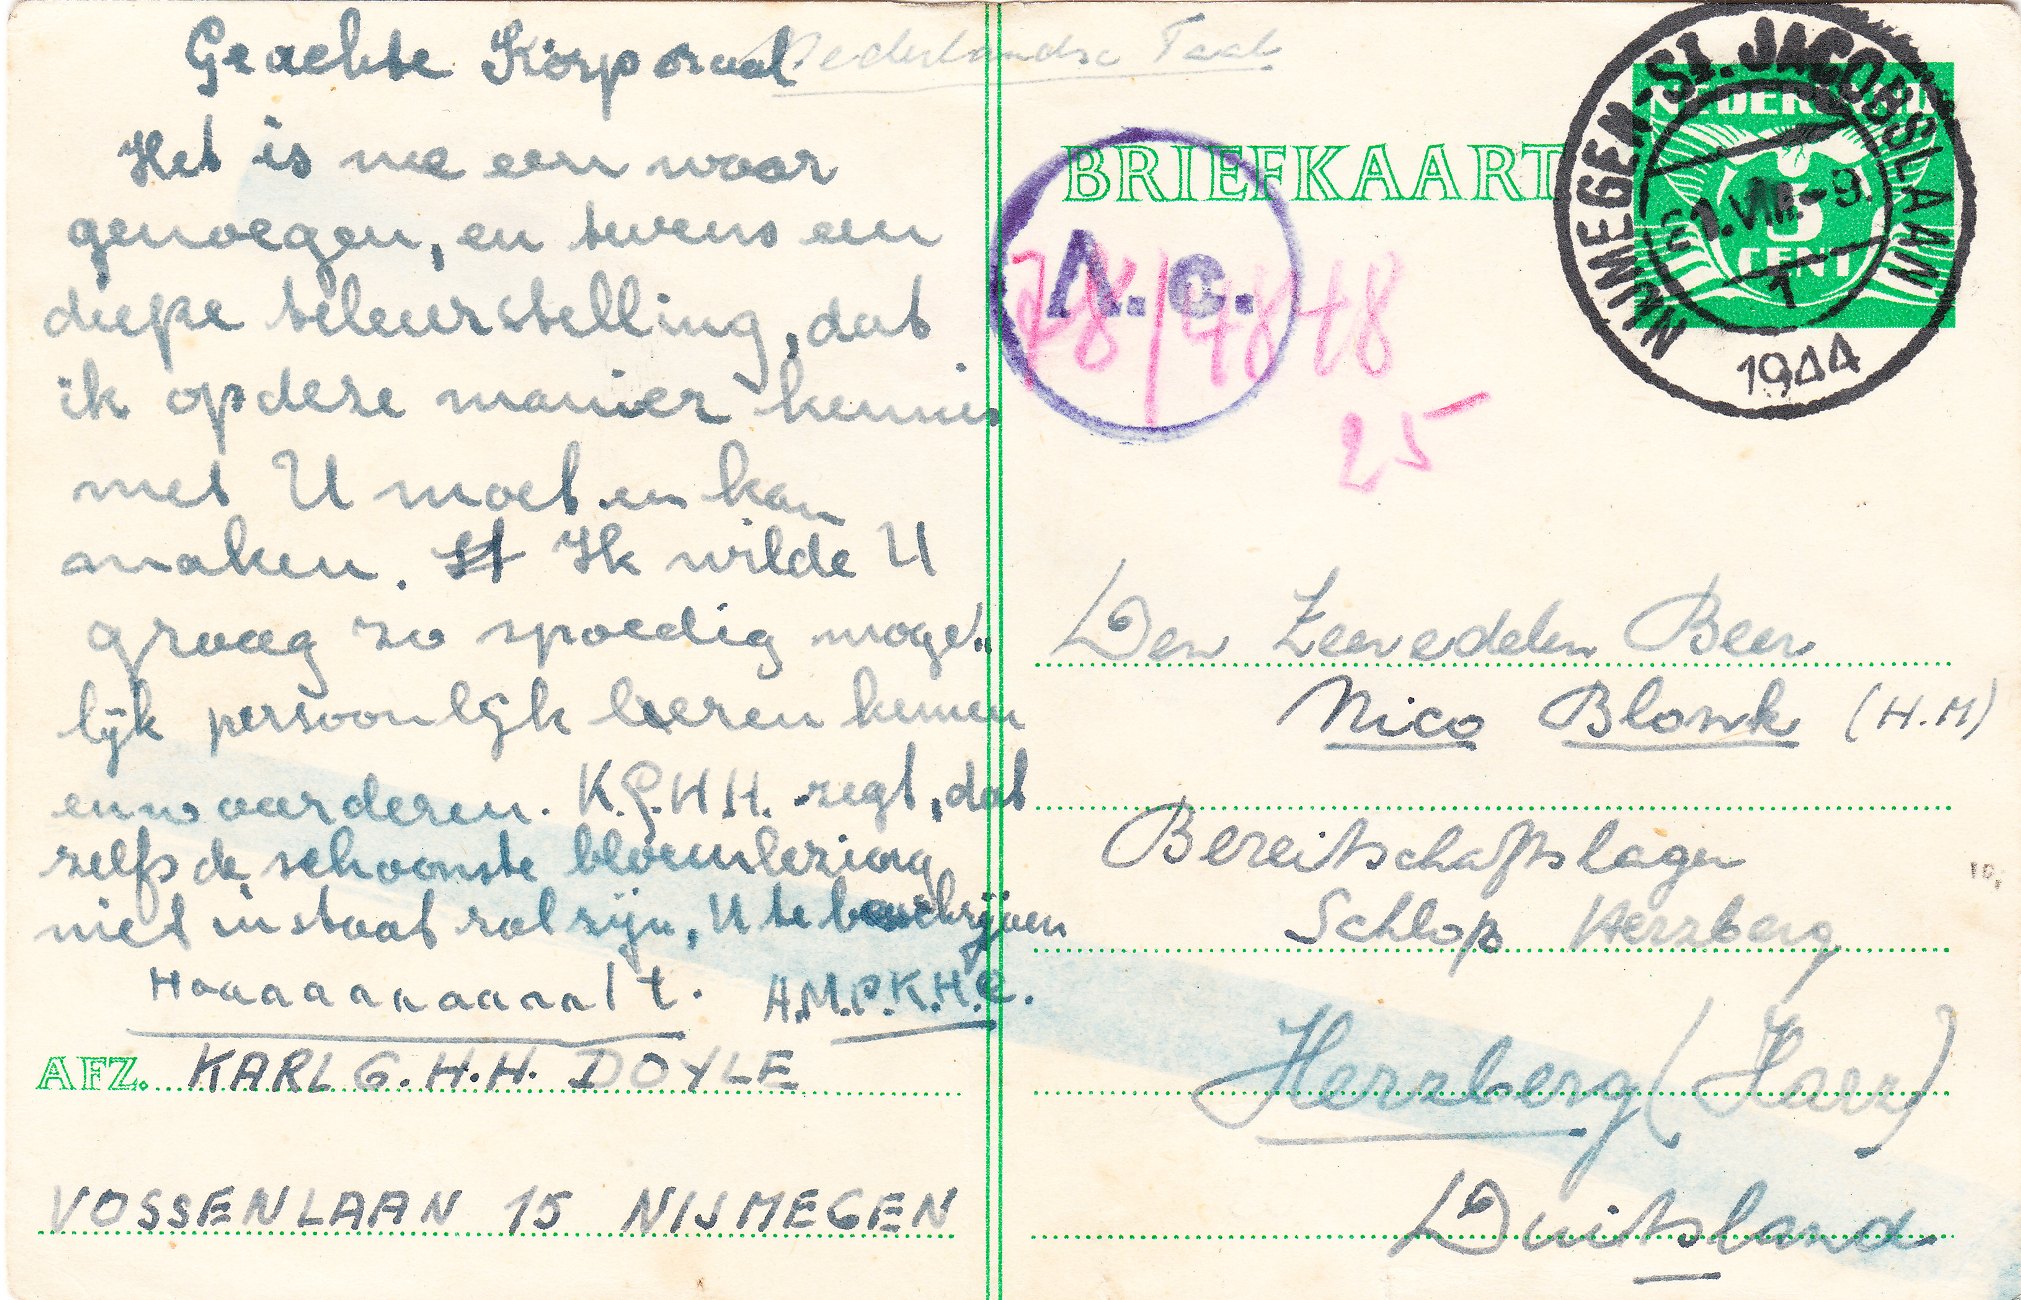 Nederlandse Taal
Geachte Korporaal
Het is me een waar
genoegen, en tevens een
diepe teleurstelling, dat
ik op deze manier kennis
met U moet en kan
maken. Ik wilde U
graag zo spoedig moge-
lijk persoonlijk leeren kennen
en waarderen. K.G.H.H. zegt, dat
zelfs de schoonste bloemlezing
niet in staat zal zijn, U te beschrijven
Haaaaaaaaaalt. A.M.P.K.H.C.
AFZ. KARL G. H. H. DOYLE
VOSSENLAAN 15 NIJMEGEN
BRIEFKAART
NEDERLAND
5
CENT
NIJMEGEN-ST. JACOBSLAAN
1
1944
A.c.
25
Den Zeeredelen Heer
Nico Blonk (H.M)
Bereitschaftslager
Schloß Herzberg
Herzberg (Harz)
Duitsland